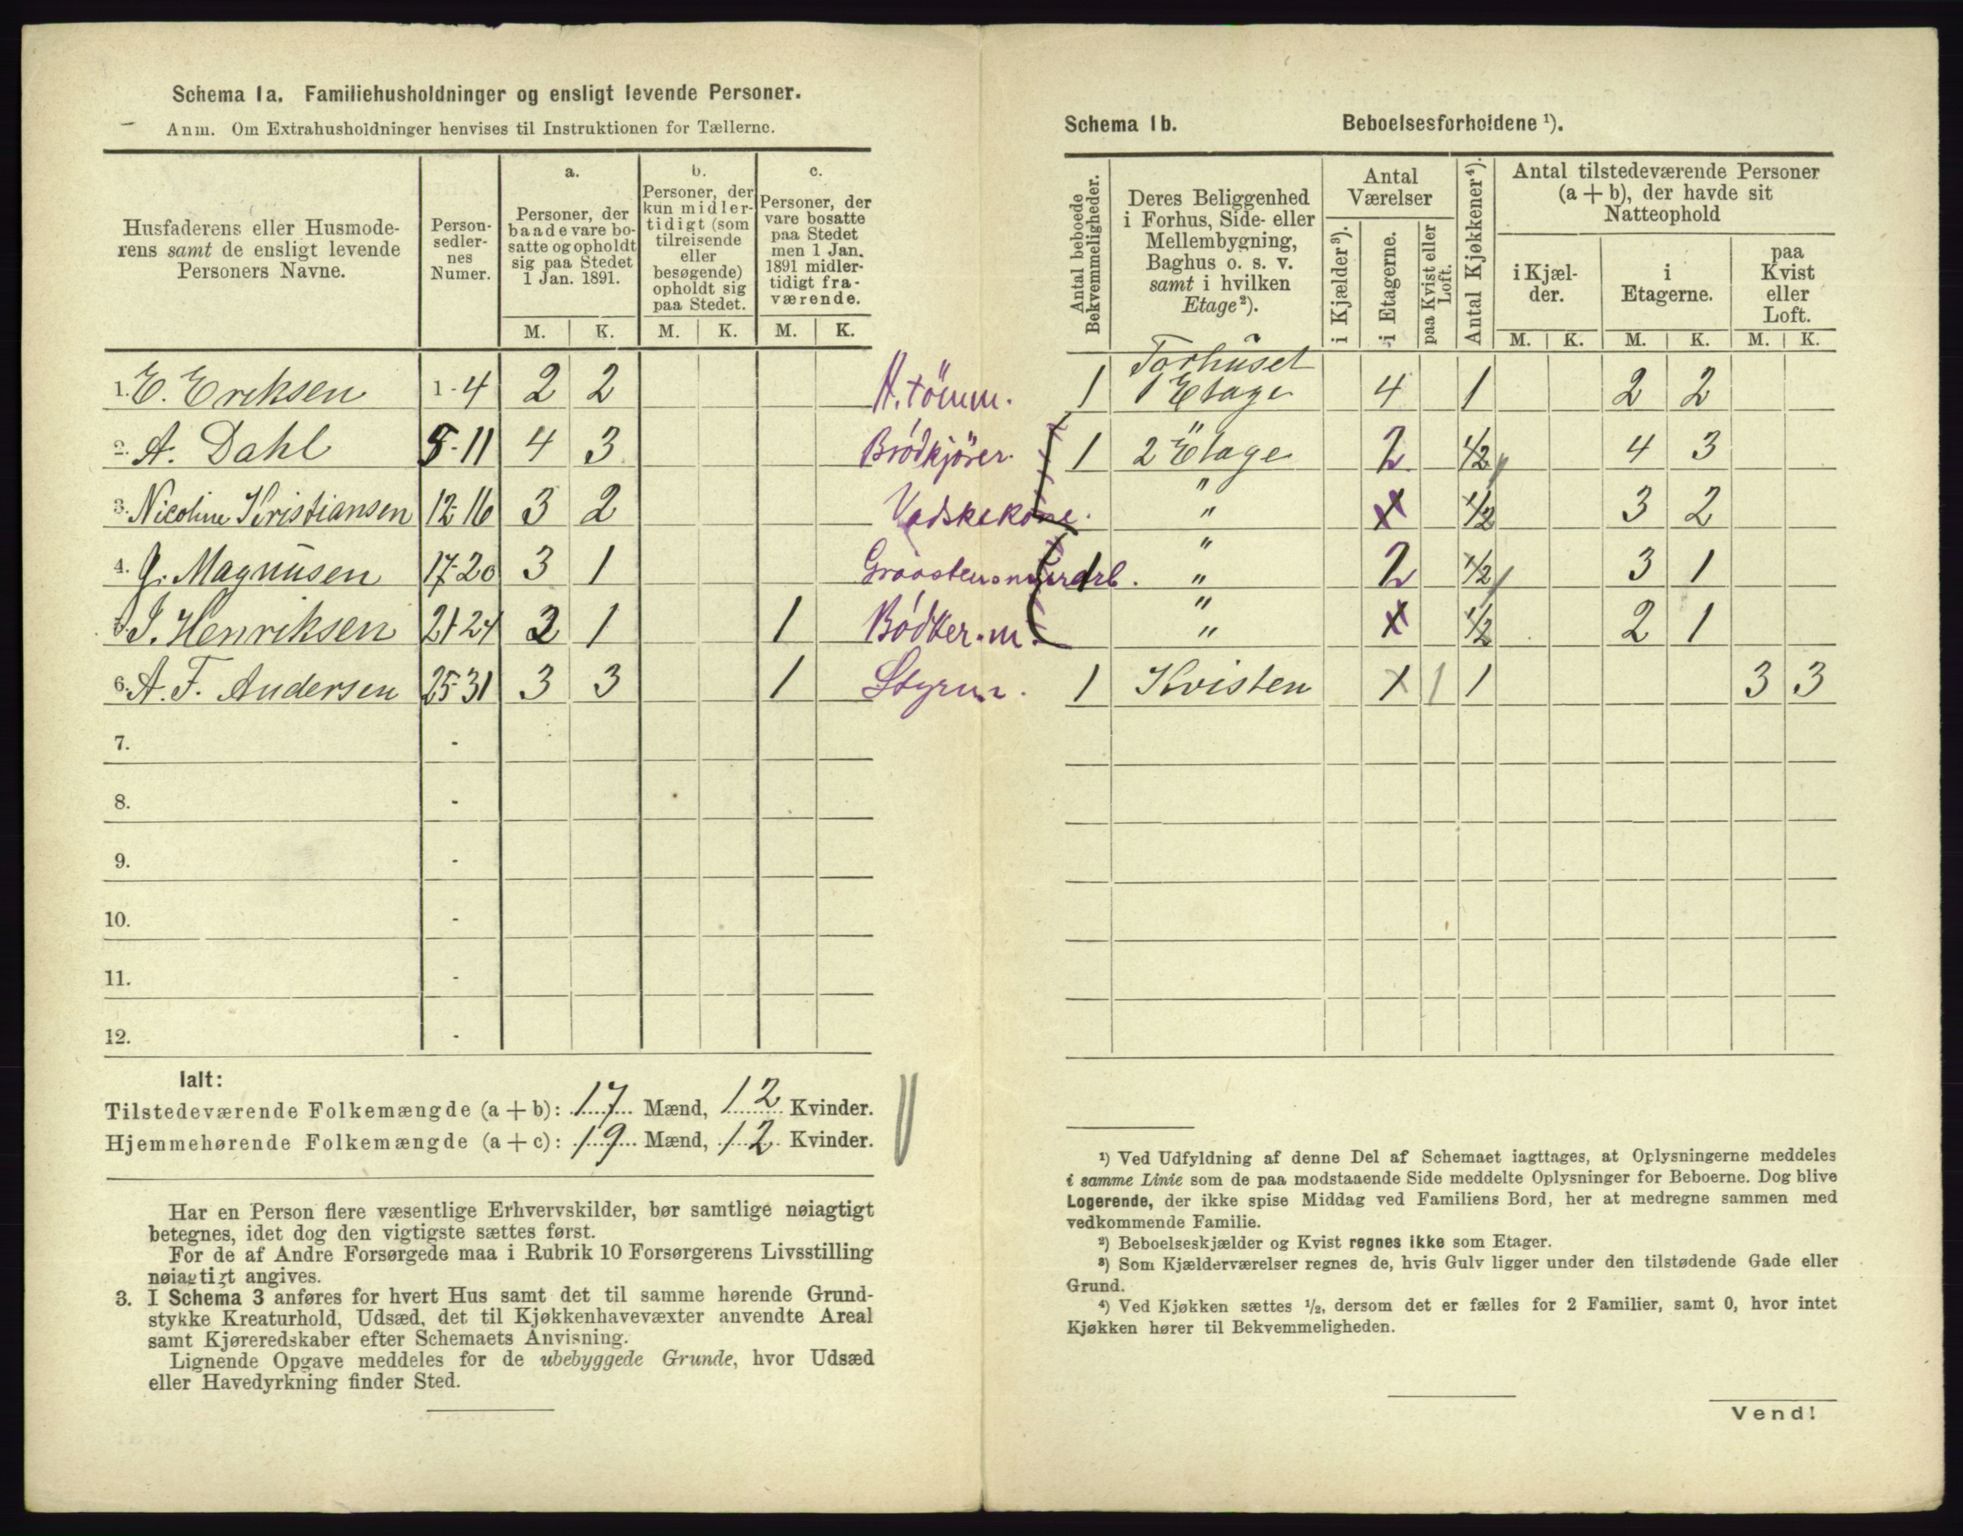 Schema 1a. Familiehusholdninger og ensligt levende Personer.
Anm. Om Extrahusholdninger henvises til Instruktionen for Tællerne.
Husfaderens eller Husmoderens samt de ensligt levende Personers Navne.
Personsedlernes Numer.
a. Personer, der baade vare bosatte og opholdt sig paa Stedet 1 Jan. 1891.
b. Personer, der kun midlertidigt (som tilreisende eller besøgende) opholdt sig paa Stedet.
c. Personer, der vare bosatte paa Stedet men 1 Jan. 1891 midlertidigt fraværende.
M. K. M. K. M. K.
1. E. Eriksen 1-4 2 2 H.tömm.
2. A. Dahl 5-11 4 3 Brödkjörer.
3. Nicoline Kristiansen 12-16 3 2 Vadskekone.
4. G. Magnusen 17-20 3 1 Graastensmurarb.
5. J. Henriksen 21-24 2 1 1 Bödker.m.
6. A. F. Andersen 25-31 3 3 1 Styrm.
7. -
8. -
9. -
10. -
11. -
12. -
Ialt:
Tilstedeværende Folkemængde (a + b): 17 Mænd, 12 Kvinder.
Hjemmehørende Folkemængde (a + c): 19 Mænd, 12 Kvinder.
Har en Person flere væsentlige Erhvervskilder, bør samtlige nøiagtigt
betegnes, idet dog den vigtigste sættes først.
For de af Andre Forsørgede maa i Rubrik 10 Forsørgerens Livsstilling
nøiagtigt angives.
3. I Schema 3 anføres for hvert Hus samt det til samme hørende Grund-
stykke Kreaturhold, Udsæd, det til Kjøkkenhavevæxter anvendte Areal
samt Kjøreredskaber efter Schemaets Anvisning.
Lignende Opgave meddeles for de ubebyggede Grunde, hvor Udsæd
eller Havedyrkning finder Sted.
Schema 1b. Beboelsesforholdene ¹).
Antal beboede Bekvemmeligheder.
Deres Beliggenhed i Forhus, Side- eller Mellembygning, Baghus o. s. v. samt i hvilken Etage²).
Antal Værelser
i Kjælder³).
i Etagerne.
paa Kvist eller Loft.
Antal Kjøkkener⁴).
Antal tilstedeværende Personer (a + b), der havde sit Natteophold
i Kjælder.
i Etagerne.
paa Kvist eller Loft.
M. K. M. K. M. K.
1 Forhuset 1 Etage 4 1 2 2
1 2 Etage 2 1/2 4 3
" x 1/2 3 2
1 " " 2 1/2 3 1
" " x 1/2 2 1
1 Kvisten 1 1 1 3 3
¹) Ved Udfyldning af denne Del af Schemaet iagttages, at Oplysningerne meddeles
i samme Linie som de paa modstaaende Side meddelte Oplysninger for Beboerne. Dog blive
Logerende, der ikke spise Middag ved Familiens Bord, her at medregne sammen med
vedkommende Familie.
²) Beboelseskjælder og Kvist regnes ikke som Etager.
³) Som Kjælderværelser regnes de, hvis Gulv ligger under den tilstødende Gade eller
Grund.
⁴) Ved Kjøkken sættes ½, dersom det er fælles for 2 Familier, samt 0, hvor intet
Kjøkken hører til Bekvemmeligheden.
Vend!